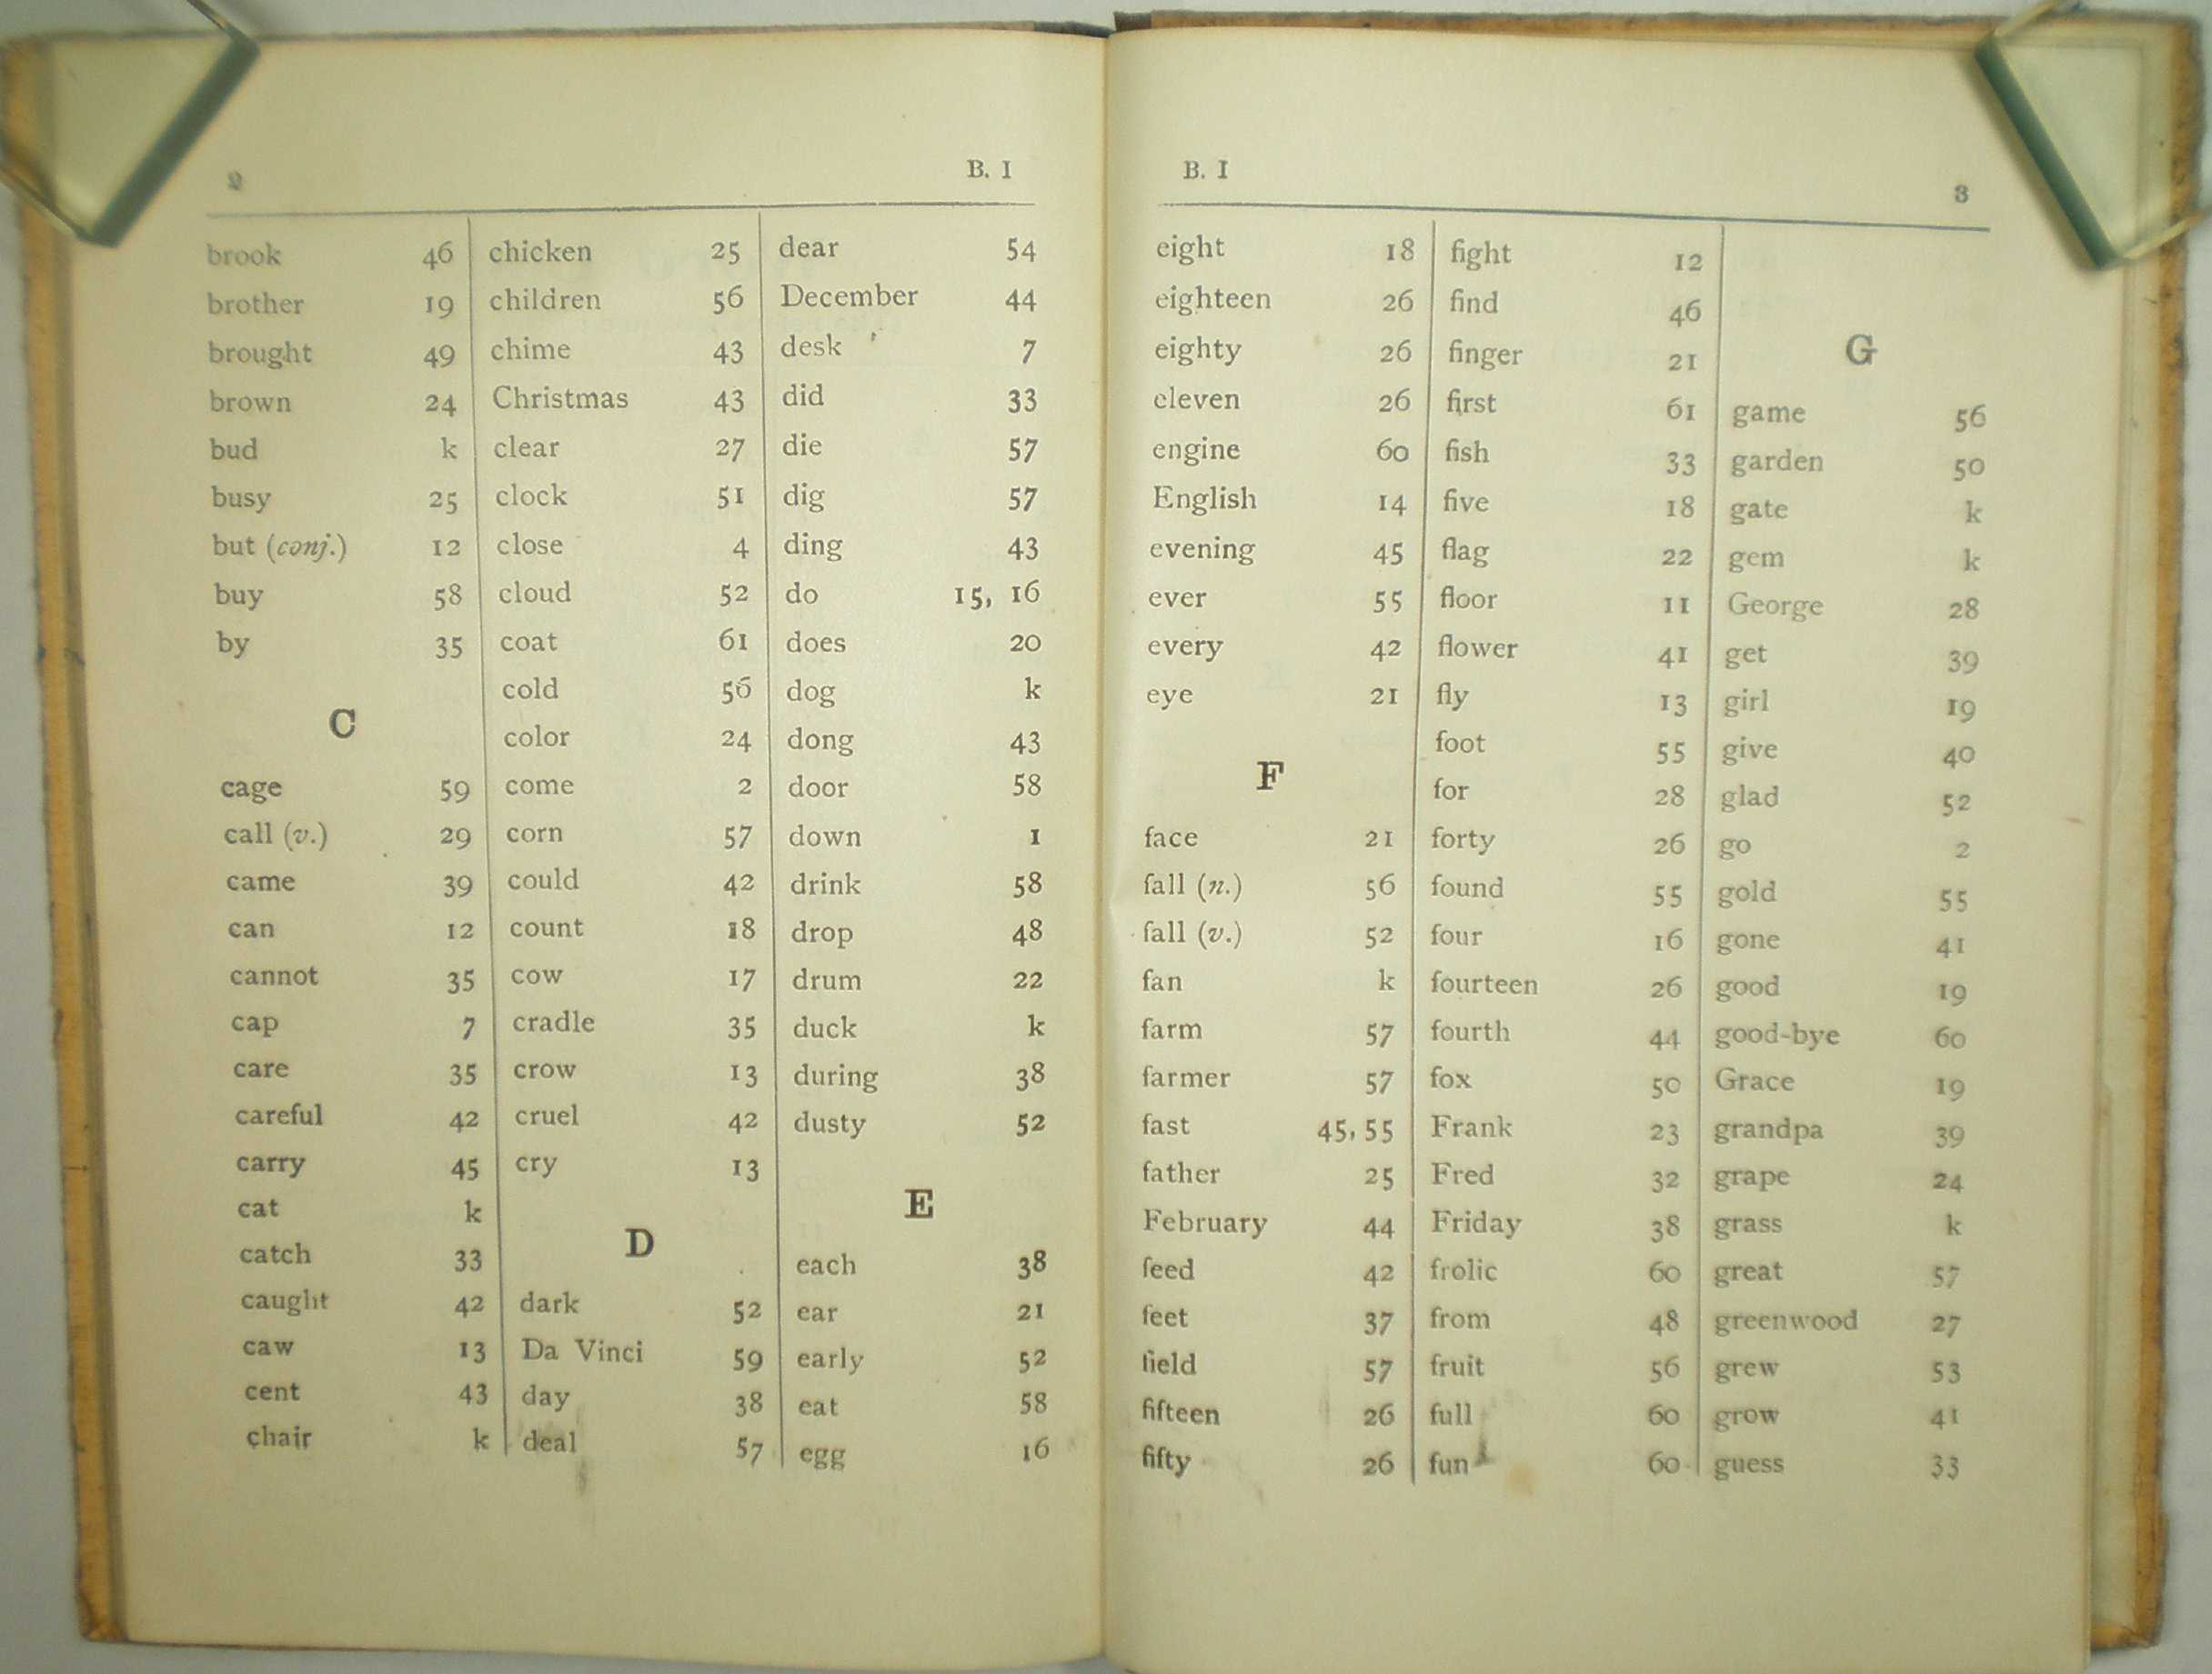 2 B. I
brook 46
brother 19
brought 49
brown 24
bud k
busy 25
but (conj.) 12
buy 58
by 35
C
cage 59
call (v.) 29
came 39
can 12
cannot 35
cap 7
care 35
careful 42
carry 45
cat k
catch 33
caught 42
caw 13
cent 43
chair k
chicken 25
children 56
chime 43
Christmas 43
clear 27
clock 51
close 4
cloud 52
coat 61
cold 56
color 24
come 2
corn 57
could 42
count 18
cow 17
cradle 35
crow 13
cruel 42
cry 13
D
dark 52
Da Vinci 59
day 38
deal 57
dear 54
December 44
desk 7
did 33
die 57
dig 57
ding 43
do 15, 16
does 20
dog k
dong 43
door 58
down 1
drink 58
drop 48
drum 22
duck k
during 38
dusty 52
E
each 38
ear 21
early 52
eat 58
egg 16
B. I 3
eight 18
eighteen 26
eighty 26
eleven 26
engine 60
English 14
evening 45
ever 55
every 42
eye 21
F
face 21
fall (n.) 56
fall (v.) 52
fan k
farm 57
farmer 57
fast 45, 55
father 25
February 44
feed 42
feet 37
field 57
fifteen 26
fifty 26
fight 12
find 46
finger 21
first 61
fish 33
five 18
flag 22
floor 11
flower 41
fly 13
foot 55
for 28
forty 26
found 55
four 16
fourteen 26
fourth 44
fox 50
Frank 23
Fred 32
Friday 38
frolic 60
from 48
fruit 56
full 60
fun 60
G
game 56
garden 50
gate k
gem k
George 28
get 39
girl 19
give 40
glad 52
go 2
gold 55
gone 41
good 19
good-bye 60
Grace 19
grandpa 39
grape 24
grass k
great 57
greenwood 27
grew 53
grow 41
guess 33